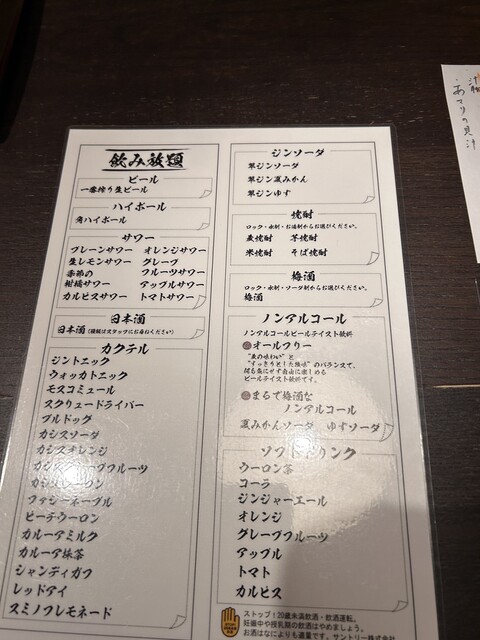 飲み放題
ビール
一番搾り生ビール
ハイボール
角ハイボール
サワー
プレーンサワー オレンジサワー
生レモンサワー グレープ
フルーツサワー
季節の
柑橘サワー アップルサワー
カルピスサワー トマトサワー
日本酒
日本酒(種類はスタッフにお尋ねください)
カクテル
ジントニック
ウォッカトニック
モスコミュール
スクリュードライバー
ブルドッグ
カシスソーダ
カシスオレンジ
カシスグレープフルーツ
カシスウーロン
ファジーネーブル
ピーチウーロン
カルーアミルク
カルーア抹茶
シャンディガフ
レッドアイ
スミノフレモネード
ジンソーダ
翠ジンソーダ
翠ジン夏みかん
翠ジンゆず
焼酎
ロック・水割・お湯割からお選びください。
麦焼酎 芋焼酎
米焼酎 そば焼酎
梅酒
ロック・水割・ソーダ割からお選びください。
梅酒
ノンアルコール
ノンアルコールビールテイスト飲料
オールフリー
"麦の味わい"と
"すっきりとした後味"のバランスで、
間も気にせず自由に楽しめる
ビールテイスト飲料です。
まるで梅酒な
ノンアルコール
夏みかんソーダ ゆずソーダ
ソフトドリンク
ウーロン茶
コーラ
ジンジャーエール
オレンジ
グレープフルーツ
アップル
トマト
カルピス
ストップ!20歳未満飲酒・飲酒運転。
妊娠中や授乳期の飲酒はやめましょう。
お酒はなによりも適量です。サントリー株式会社
あさりの貝汁